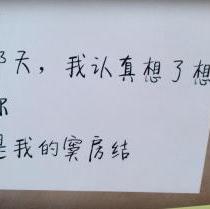 那天，我认真想了想
你
是我的窦房结